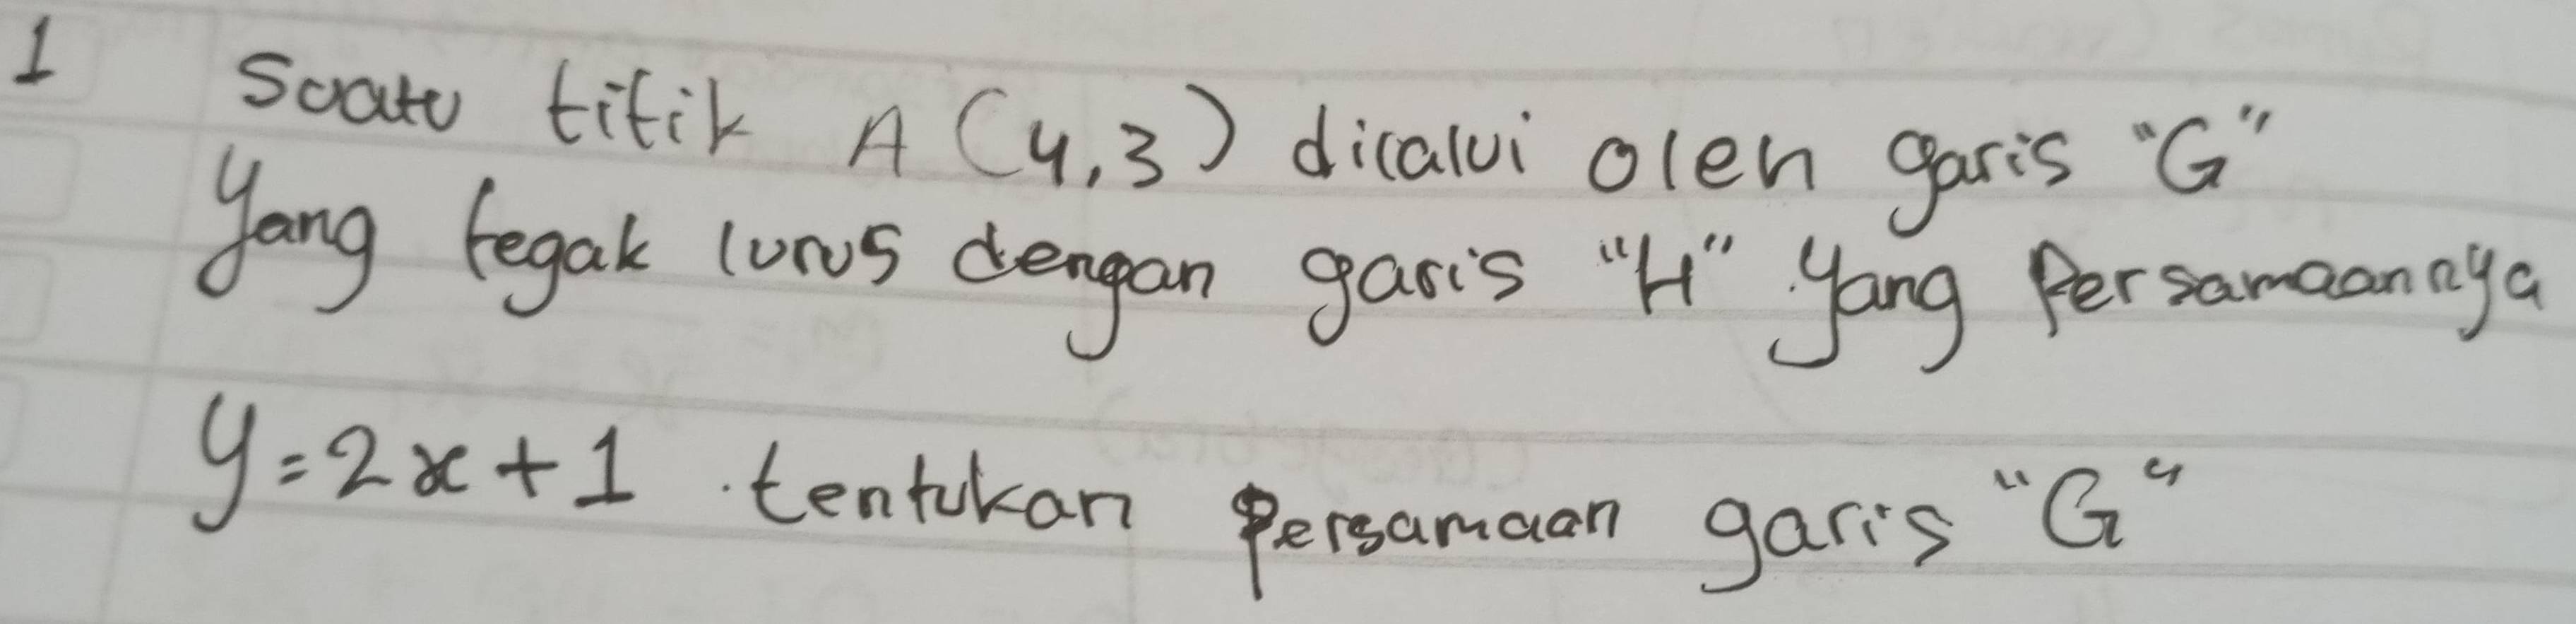 1 Suatu titik A (4,3) dilalui oleh garis "G"
Yang tegak lurus dengan garis "H" Yang Persamaannya
y=2x+1 . tentukan Persamaan garis "G"